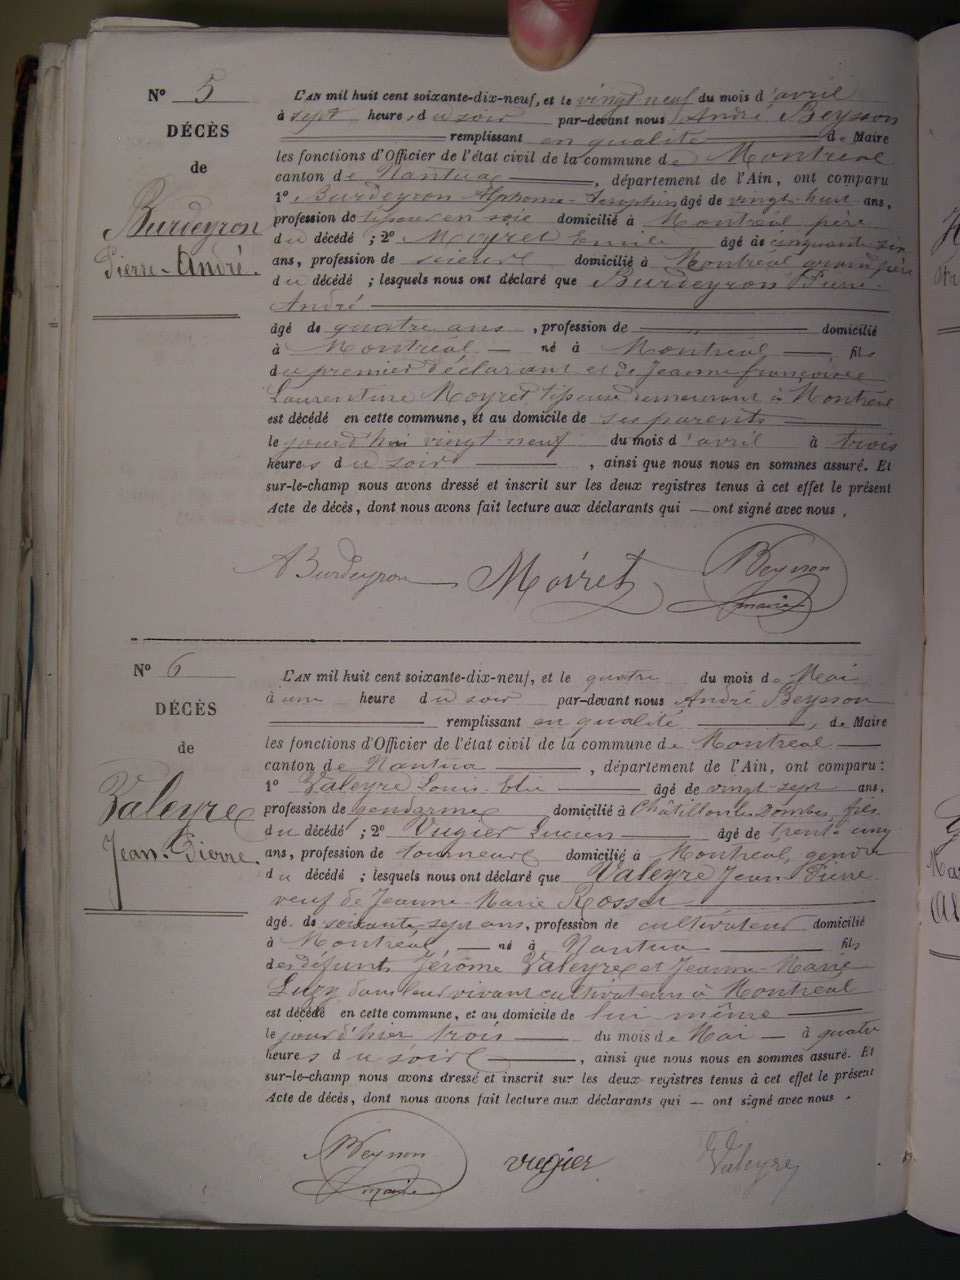 N° 5
DÉCÈS
de
Burdeyron
Pierre-André.
L'AN mil huit cent soixante-dix-neuf, et le vingt neuf du mois d'avril
à sept heures, du soir par-devant nous André Beysson
remplissant en qualité de Maire
les fonctions d'Officier de l'état civil de la commune de Montréal
canton de Nantua, département de l'Ain, ont comparu
1° Burdeyron Alphonse Seraphin âgé de vingt-huit ans,
profession de tisseur en soie domicilié à Montréal père
du décédé ; 2° Moyret Emile âgé de cinquante six
ans, profession de scieur domicilié à Montréal grand père
du décédé ; lesquels nous ont déclaré que Burdeyron Pierre
André
âgé de quatre ans, profession de domicilié
à Montréal né à Montréal fils
du premier déclarant et de Jeanne françoise
Laurentine Moyret, tisseuse demeurant à Montréal
est décédé en cette commune, et au domicile de ses parents
le jourd'hui vingt-neuf du mois d'avril à trois
heures du soir, ainsi que nous nous en sommes assuré. Et
sur-le-champ nous avons dressé et inscrit sur les deux registres tenus à cet effet le présent
Acte de décès, dont nous avons fait lecture aux déclarants qui — ont signé avec nous.
A Burdeyron Moiret Beysson
maire
N° 6
DÉCÈS
de
Valeyre
Jean-Pierre.
L'AN mil huit cent soixante-dix-neuf, et le quatre du mois de Mai
à une heure du soir par-devant nous André Beysson
remplissant en qualité, de Maire
les fonctions d'Officier de l'état civil de la commune de Montréal
canton de Nantua, département de l'Ain, ont comparu :
1° Valeyre Louis âgé de vingt sept ans,
profession de gendarme domicilié à Châtillon les Dombes, fils
du décédé ; 2° Vugier Lucien âgé de trente cinq
ans, profession de tourneur domicilié à Montréal, gendre
du décédé ; lesquels nous ont déclaré que Valeyre Jean Pierre
veuf de Jeanne-Marie Rosset
âgé de soixante-sept ans, profession de cultivateur domicilié
à Montréal, né à Nantua fils
des défunts Jérôme Valeyre et Jeanne-Marie
Luzy dans leur vivant cultivateurs à Montréal
est décédé en cette commune, et au domicile de lui même
le jour d'hier trois du mois de Mai à quatre
heures du soir, ainsi que nous nous en sommes assuré. Et
sur-le-champ nous avons dressé et inscrit sur les deux registres tenus à cet effet le présent
Acte de décès, dont nous avons fait lecture aux déclarants qui — ont signé avec nous.
Beysson vugier Valeyre
maire